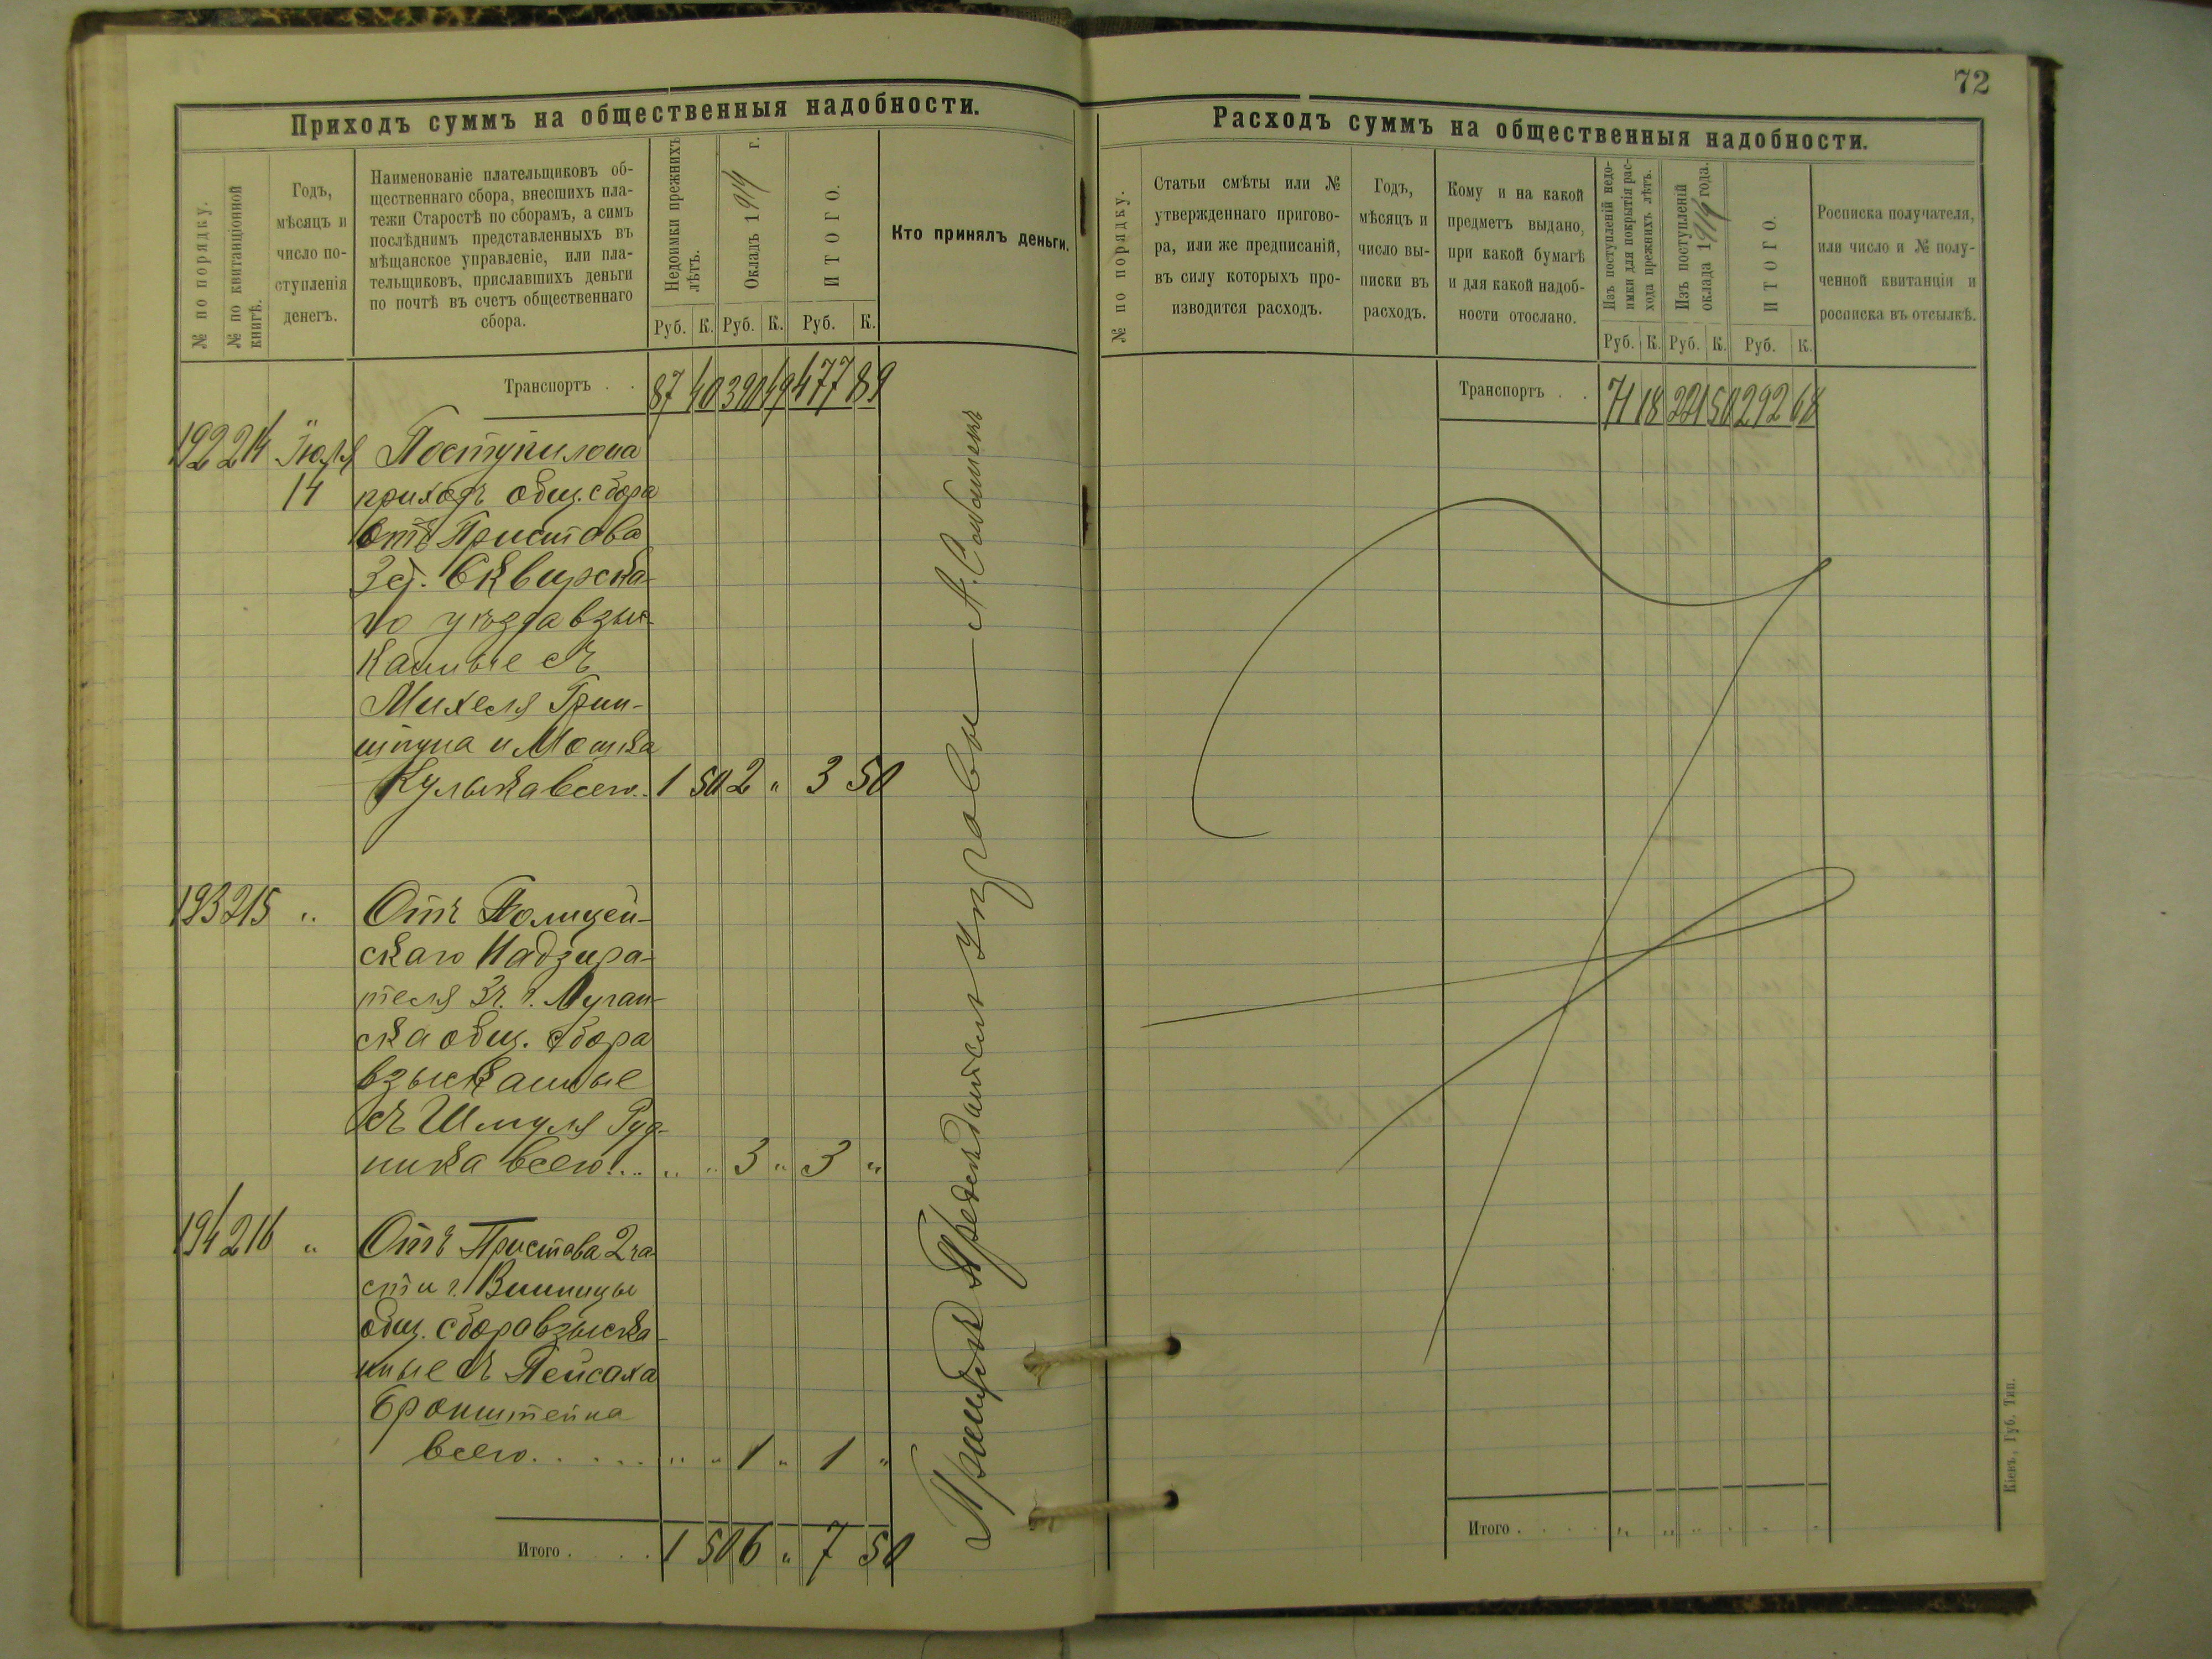 Приходъ суммъ на общественныя надобности.
№ по порядку.
№ по квитанціонной книгѣ.
Годъ,
мѣсяцъ и
число по-
ступленія
денегъ.
Наименованіе плательщиковъ об-
щественнаго сбора, внесшихъ пла-
тежи Старостѣ по сборамъ, а симъ
послѣднимъ представленныхъ въ
мѣщанское управленіе, или пла-
тельщиковъ, приславшихъ деньги
по почтѣ въ счетъ общественнаго
сбора.
Недоимки прежнихъ
лѣтъ.
Окладъ 1914 г.
ИТОГО.
Руб. К. Руб. К. Руб. К.
Кто принялъ деньги.
Транспортъ . . 87 40 390 49 477 89
192 214 Іюля Поступило на
14 приходъ общ. сбора
Отъ Пристава
3 ст. Сквирска-
го уѣзда взыс-
канные съ
Михеля Грин-
шпуна и Мошка
Кулыка всего.. 1 50 2 " 3 50
193 215 " Отъ Полицей-
скаго Надзира-
теля 3 ч. г. Луган-
ска общ. сбора
взысканные
съ Шмуля Руд-
ника всего... " " 3 " 3 "
194 216 " Отъ Пристава 2 ча-
сти г. Винницы
общ. сбора взыска-
нные съ Пейсаха
Бронштейна
всего..... " " 1 " 1 "
Итого . . . . 1 50 6 " 7 50
Управы А.
72
Расходъ суммъ на общественныя надобности.
№ по порядку.
Статьи смѣты или №
утвержденнаго пригово-
ра, или же предписаній,
въ силу которыхъ про-
изводится расходъ.
Годъ,
мѣсяцъ и
число вы-
писки въ
расходъ.
Кому и на какой
предметъ выдано,
при какой бумагѣ
и для какой надоб-
ности отослано.
Изъ поступленій недо-
имки для покрытія рас-
хода прежнихъ лѣтъ.
Изъ поступленій
оклада 1914 года.
ИТОГО.
Руб. К. Руб. К. Руб. К.
Росписка получателя,
или число и № полу-
ченной квитанціи и
росписка въ отсылкѣ.
Транспортъ . . 71 18 221 50 292 68
Итого . . . . " " " " " "
Кіевъ, Губ. Тип.